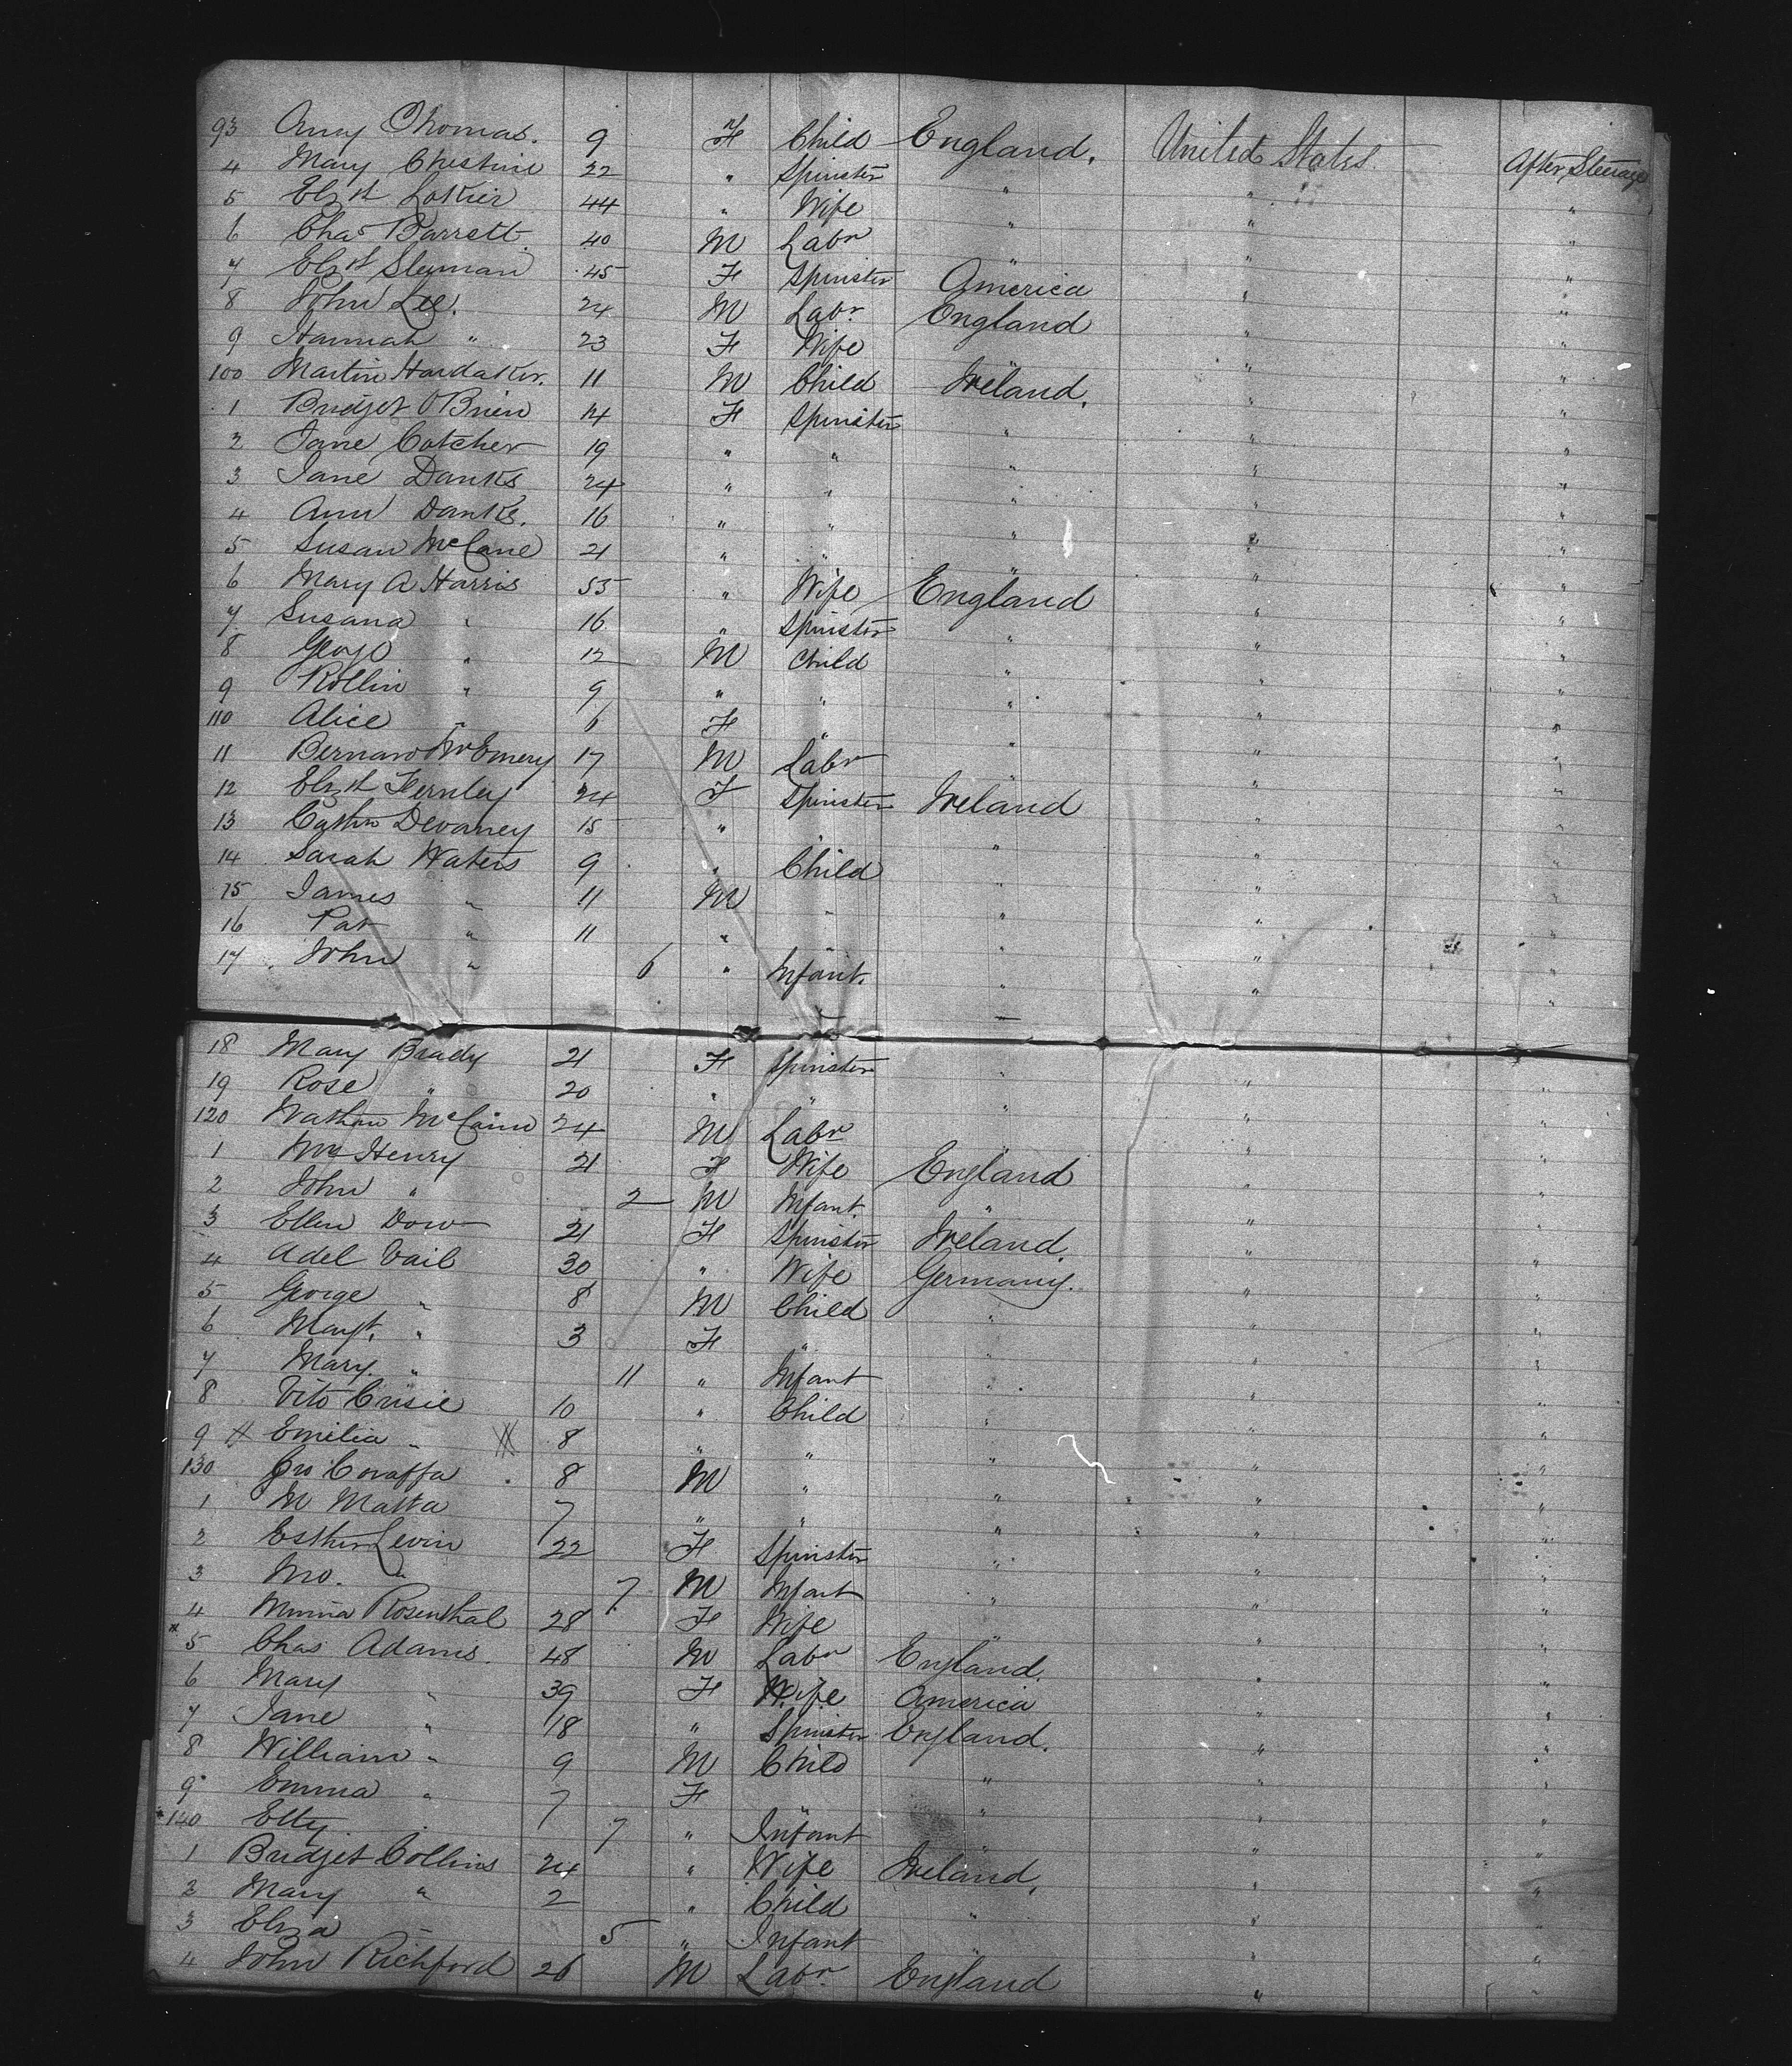 93 Amy Thomas. 9 F Child England. United States After Steerage
4 Mary Cheshire 22 " Spinster " " "
5 Elzth Lokier 44 " Wife " " "
6 Chas Barrett. 40 M Labr " " "
7 Elzth Sleyman 45 F Spinster America " "
8 John Lee. 24 M Labr England " "
9 Hannah " 23 F Wife " " "
100 Martin Hardaker. 11 M Child Ireland. " "
1 Bridget O'Brien 14 F Spinster " " "
2 Jane Catcher 19 " " " " "
3 Jane Danks 24 " " " " "
4 Ann Danks. 16 " " " " "
5 Susan McCane 21 " " " " "
6 Mary A Harris 55 " Wife England " "
7 Susana " 16 " Spinster " " "
8 Geogo " 12 M Child " " "
9 Rollin " 9 " " " " "
110 Alice " 6 F " " " "
11 Bernard McEmery 17 M Labr " " "
12 Elzth Fernley 24 F Spinster Ireland " "
13 Cathn Devaney 15 " " " " "
14 Sarah Waters 9 " Child " " "
15 James " 11 M " " " "
16 Pat " 11 " " " " "
17 John " 6 " Infant. " " "
18 Mary Brady 21 F Spinster " " "
19 Rose " 20 " " " " "
120 Nathan McCann 24 M Labr " " "
1 Mrs Henry 21 F Wife England " "
2 John " 2 M Infant. " " "
3 Ellen Dow 21 F Spinster Ireland. " "
4 Adel Vail 30 " Wife Germany. " "
5 George " 8 M Child " " "
6 Margt. " 3 F " " " "
7 Mary. " 11 " Infant " " "
8 Vito Crisie 10 " Child " " "
9 Emilia " 8 " " " " "
130 Gio Coraffa 8 M " " " "
1 M Matta 7 " " " " "
2 Esther Levin 22 F Spinster " " "
3 Mo. " 7 M Infant " " "
4 Minna Rosenthal 28 F Wife " " "
5 Chas Adams. 48 M Labr England. " "
6 Mary " 39 F Wife America " "
7 Jane " 18 " Spinster England. " "
8 William " 9 M Child " " "
9 Emma " 7 F " " " "
140 Etty " 7 " Infant " " "
1 Bridget Collins 24 " Wife Ireland. " "
2 Mary " 2 " Child " " "
3 Eliza " 5 " Infant " " "
4 John Richford 26 M Labr England " "